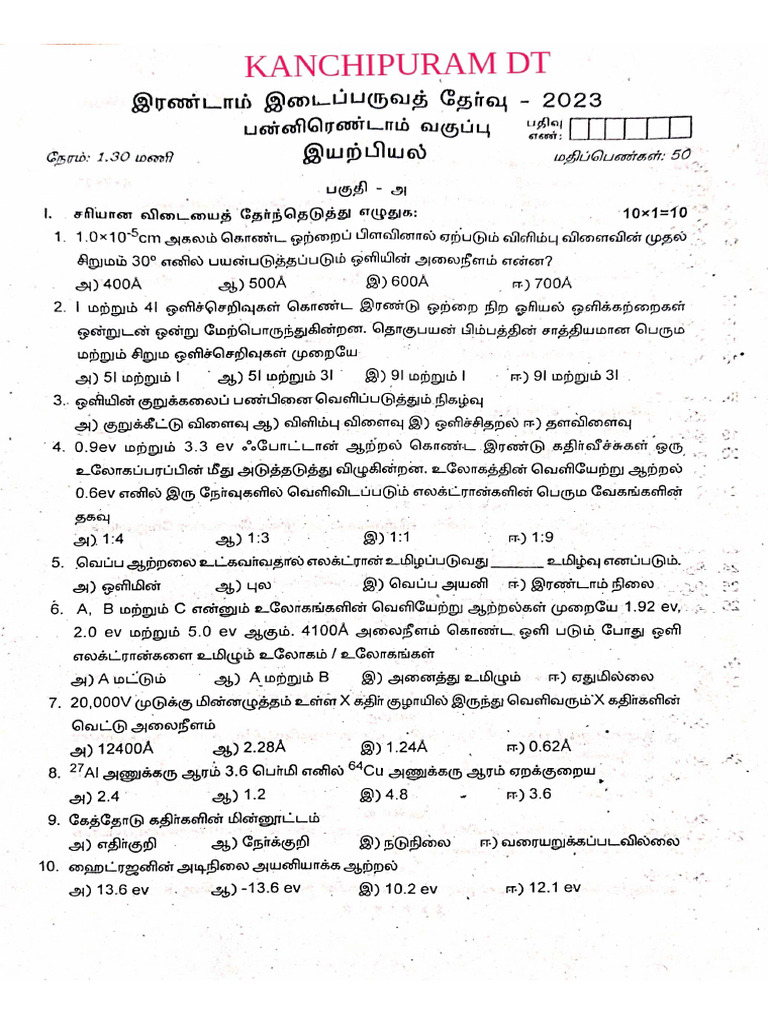 KANCHIPURAM DT
இரண்டாம் இடைப்பருவத் தேர்வு - 2023
பன்னிரெண்டாம் வகுப்பு
பதிவு
எண்:
நேரம்: 1.30 மணி
இயற்பியல்
மதிப்பெண்கள்: 50
பகுதி - அ
I. சரியான விடையைத் தேர்ந்தெடுத்து எழுதுக: 10×1=10
1. 1.0×10⁻⁵cm அகலம் கொண்ட ஒற்றைப் பிளவினால் ஏற்படும் விளிம்பு விளைவின் முதல்
சிறுமம் 30º எனில் பயன்படுத்தப்படும் ஒளியின் அலைநீளம் என்ன?
அ) 400Å ஆ) 500Å இ) 600Å ஈ) 700Å
2. I மற்றும் 4I ஒளிச்செறிவுகள் கொண்ட இரண்டு ஒற்றை நிற ஓரியல் ஒளிக்கற்றைகள்
ஒன்றுடன் ஒன்று மேற்பொருந்துகின்றன. தொகுபயன் பிம்பத்தின் சாத்தியமான பெரும
மற்றும் சிறும ஒளிச்செறிவுகள் முறையே
அ) 5I மற்றும் I ஆ) 5I மற்றும் 3I இ) 9I மற்றும் I ஈ) 9I மற்றும் 3I
3. ஒளியின் குறுக்கலைப் பண்பினை வெளிப்படுத்தும் நிகழ்வு
அ) குறுக்கீட்டு விளைவு ஆ) விளிம்பு விளைவு இ) ஒளிச்சிதறல் ஈ) தளவிளைவு
4. 0.9ev மற்றும் 3.3 ev ஃபோட்டான் ஆற்றல் கொண்ட இரண்டு கதிர்வீச்சுகள் ஒரு
உலோகப்பரப்பின் மீது அடுத்தடுத்து விழுகின்றன. உலோகத்தின் வெளியேற்று ஆற்றல்
0.6ev எனில் இரு நேர்வுகளில் வெளிவிடப்படும் எலக்ட்ரான்களின் பெரும வேகங்களின்
தகவு
அ) 1:4 ஆ) 1:3 இ) 1:1 ஈ) 1:9
5. வெப்ப ஆற்றலை உட்கவர்வதால் எலக்ட்ரான் உமிழப்படுவது ______ உமிழ்வு எனப்படும்.
அ) ஒளிமின் ஆ) புல இ) வெப்ப அயனி ஈ) இரண்டாம் நிலை
6. A, B மற்றும் C என்னும் உலோகங்களின் வெளியேற்று ஆற்றல்கள் முறையே 1.92 ev,
2.0 ev மற்றும் 5.0 ev ஆகும். 4100Å அலைநீளம் கொண்ட ஒளி படும் போது ஒளி
எலக்ட்ரான்களை உமிழும் உலோகம் / உலோகங்கள்
அ) A மட்டும் ஆ) A மற்றும் B இ) அனைத்து உமிழும் ஈ) ஏதுமில்லை
7. 20,000V முடுக்கு மின்னழுத்தம் உள்ள X கதிர் குழாயில் இருந்து வெளிவரும் X கதிர்களின்
வெட்டு அலைநீளம்
அ) 12400Å ஆ) 2.28Å இ) 1.24Å ஈ) 0.62Å
8. ²⁷Al அணுக்கரு ஆரம் 3.6 பெர்மி எனில் ⁶⁴Cu அணுக்கரு ஆரம் ஏறக்குறைய
அ) 2.4 ஆ) 1.2 இ) 4.8 ஈ) 3.6
9. கேத்தோடு கதிர்களின் மின்னூட்டம்
அ) எதிர்குறி ஆ) நேர்க்குறி இ) நடுநிலை ஈ) வரையறுக்கப்படவில்லை
10. ஹைட்ரஜனின் அடிநிலை அயனியாக்க ஆற்றல்
அ) 13.6 ev ஆ) -13.6 ev இ) 10.2 ev ஈ) 12.1 ev